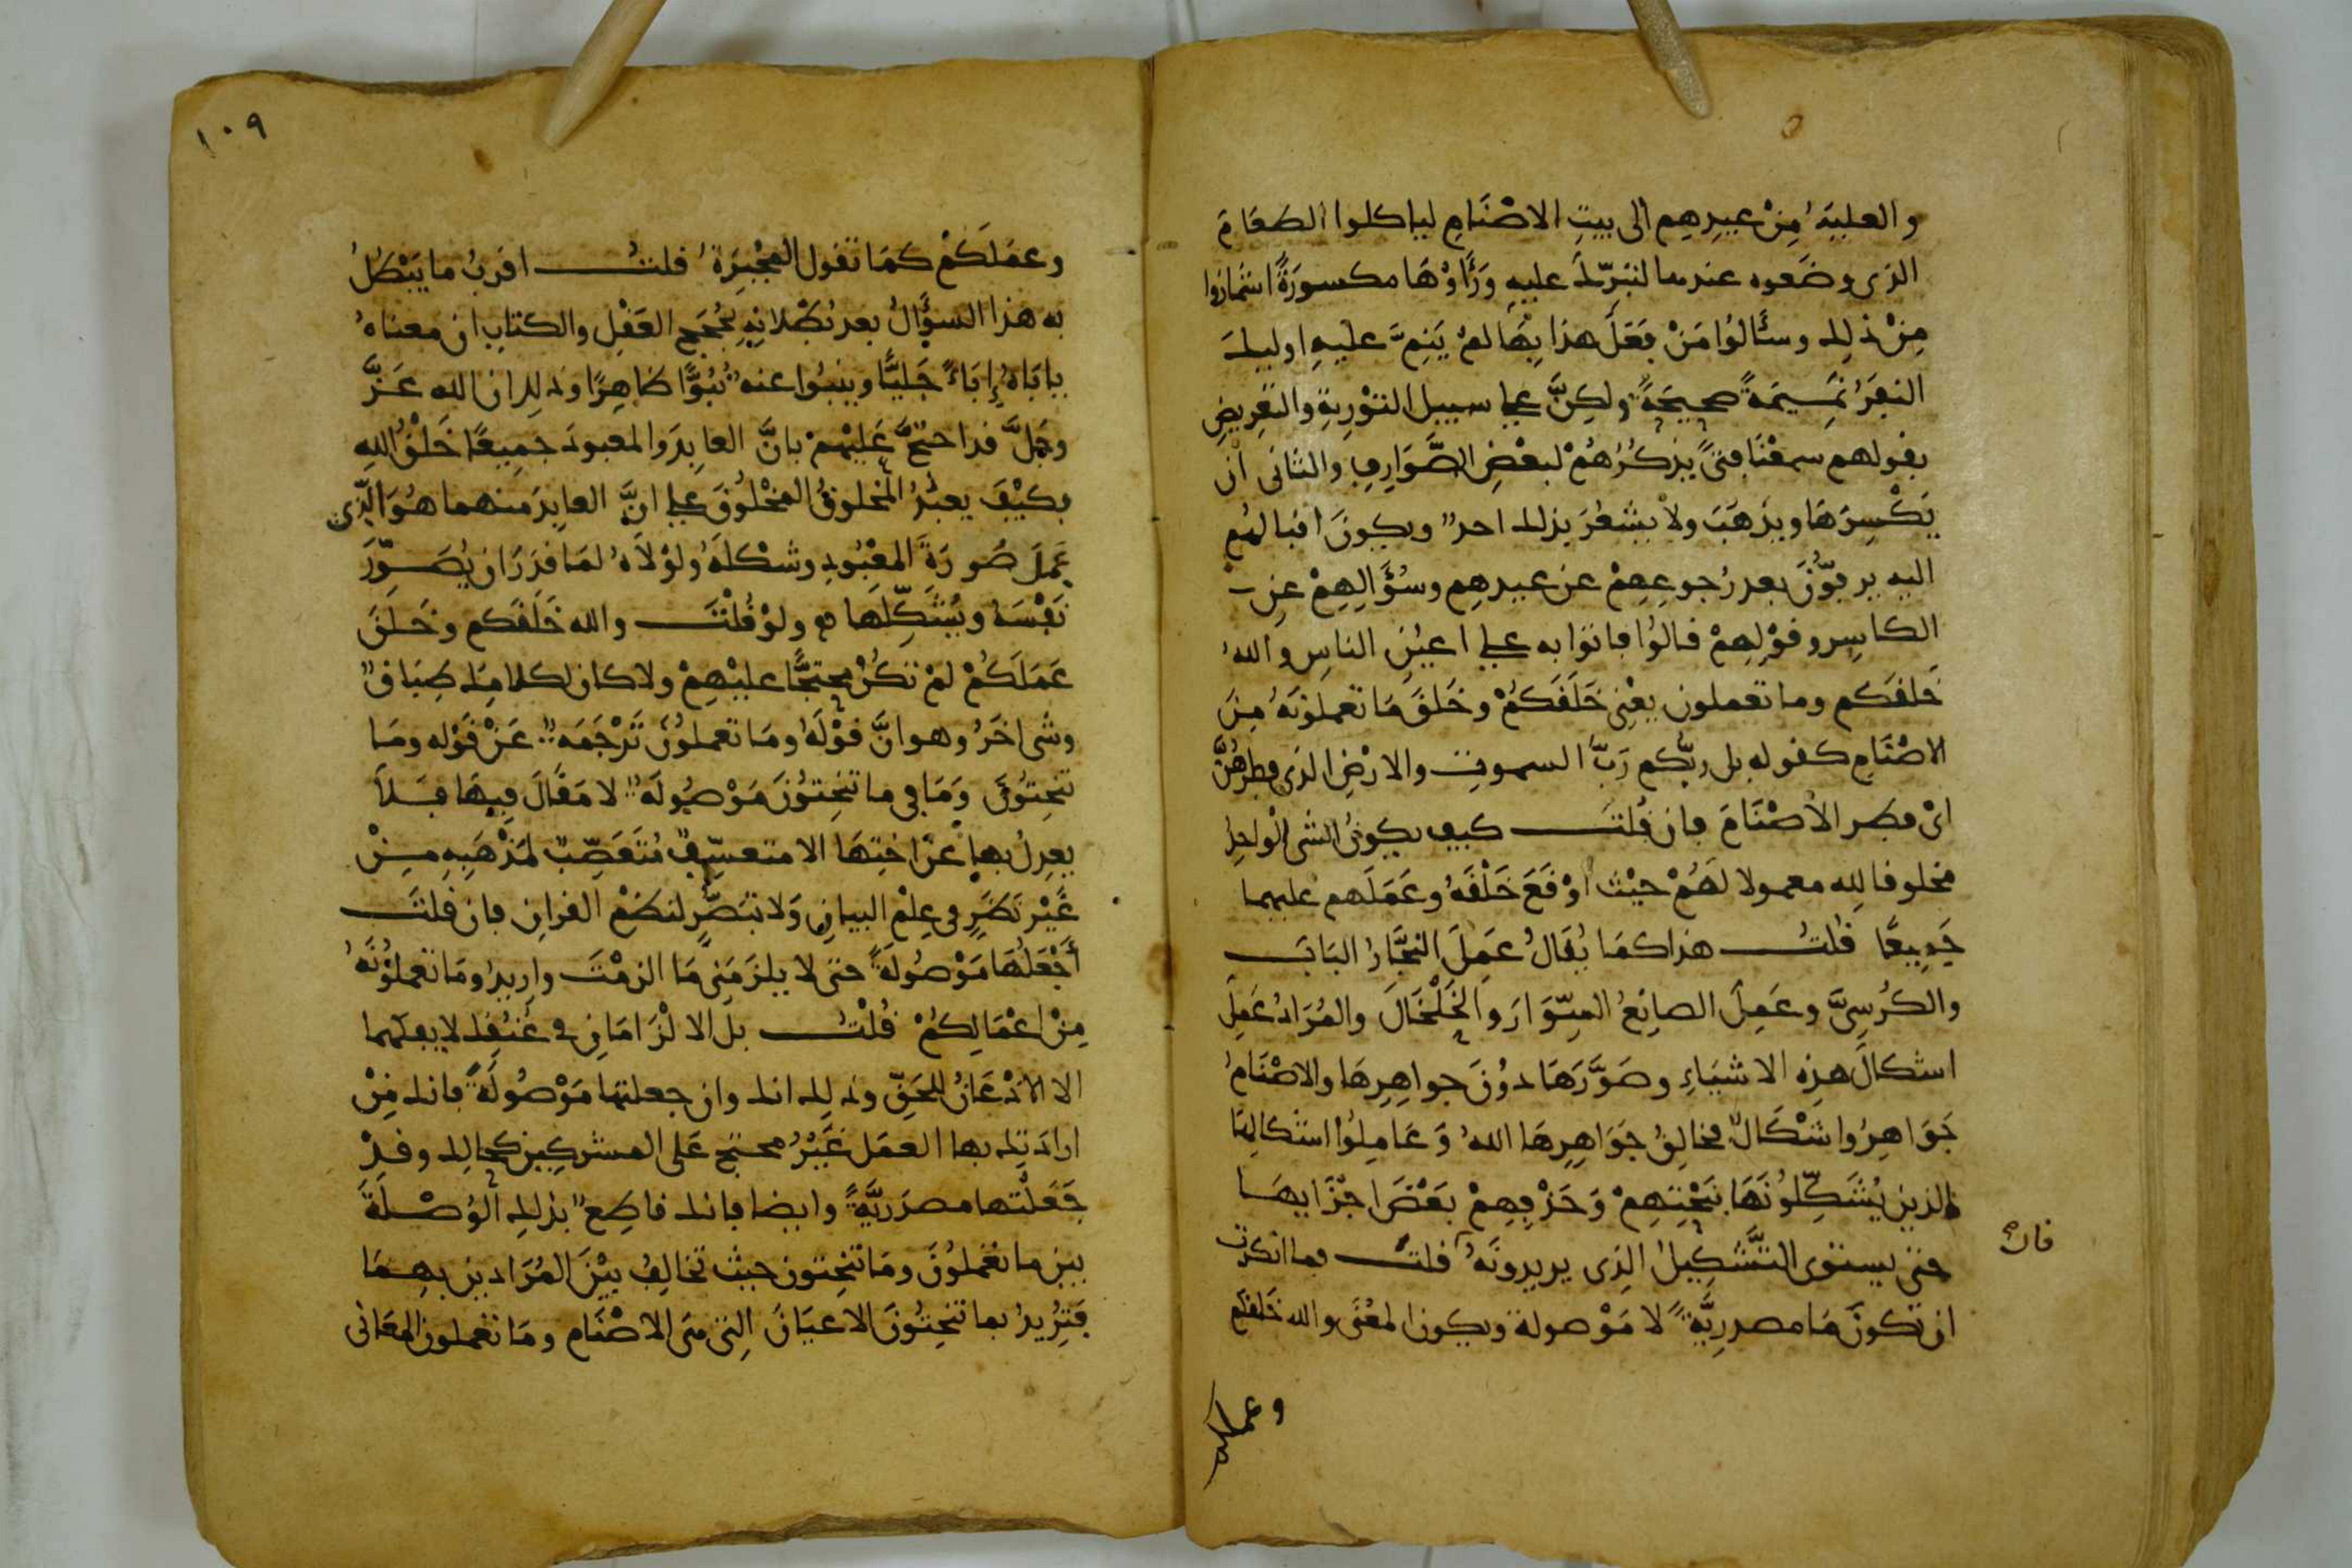 والعلية من عيدهم إلى بيت الاصنام لياكلوا الطعام
الذى وضعوه عندها لتبرّك عليه ورأوها مكسورة اشمأزوا
من ذلك وسألوا من فعل هذا بها لم يَنِمّ عليه اوليك
النفر نميمة صحيحة ولكن على سبيل التورية والتعريض
بقولهم سمعنا فتى يذكرهم لبعض الصوارف والثانى ان
يكسرها ويذهب ولا يشعر بذلك احد ويكون اقبالهم
اليه يزفون بعد رجوعهم عن عيدهم وسؤالهم عن
الكاسر وقولهم قالوا فاتوا به على اعين الناس والله
خلقكم وما تعملون يعنى خلقكم وخلق ما تعملونه من
الاصنام كقوله بل ربكم رب السموت والارض الذى فطرهن
اى فطر الاصنام فان قلت كيف يكون الشى الواحد
مخلوقا لله معمولا لهم حيث اوقع خلقه وعملهم عليهما
جميعا قلت هذا كما يقال عمل النجار الباب
والكرسى وعمل الصانع السوار والخلخال والمراد عمل
اشكال هذه الاشياء وصورها دون جواهرها والاصنام
جواهر واشكال فخالق جواهرها الله وعاملوا اشكالها
الذين يشكلونها بنحتهم وحذفهم بعض اجزايها
حتى يستوى التشكيل الذى يريدونه قلت فما انكرت
فان
ان تكون ما مصدرية لا موصولة ويكون المعنى والله خلقكم
وعملكم
١٠٩
وعملكم كما تقول المجبرة قلت اقرب ما يبطل
به هذا السؤال بعد بطلانه بحجج العقل والكتاب ان معناه
ياباه إباء جليا وينبوا عنه نبوا ظاهرا وذلك ان الله عزّ
وجلّ قد احتج عليهم بان العابد والمعبود جميعا خلق الله
فكيف يعبد المخلوق المخلوق على ان العابد منهما هو الذى
عمل صورة المعبود وشكله ولولاه لما قدر ان يصور
نفسه ويشكلها ولو قلت والله خلقكم وخلق
عملكم لم تكن محتجا عليهم ولا كان لكلامك طباق
وشى اخر وهو ان قوله وما تعملون ترجمة عن قوله وما
تنحتون وما فى ما تنحتون موصولة لا مقال فيها فلا
يعدل بها عن اختها الا متعسف متعصب لمذهبه من
غير نظر فى علم البيان ولا تبصر لنظم القران فان قلت
أجعلها موصولة حتى لا يلزمنى ما الزمت واريد وما تعملونه
من اعمالكم قلت بل الا لزامان فى عنقك لا يفكهما
الا الاذعان للحق وذلك انك وان جعلتها موصولة فانك فى
ارادتك بها العمل غير محتج على المشركين كحالك وقد
جعلتها مصدرية وايضا فانك قاطع بذلك الوصلة
بين ما تعملون وما تنحتون حيث تخالف بين المرادين بهما
فتريد بما تنحتون الاعيان التى هى الاصنام وما تعملون المعانى